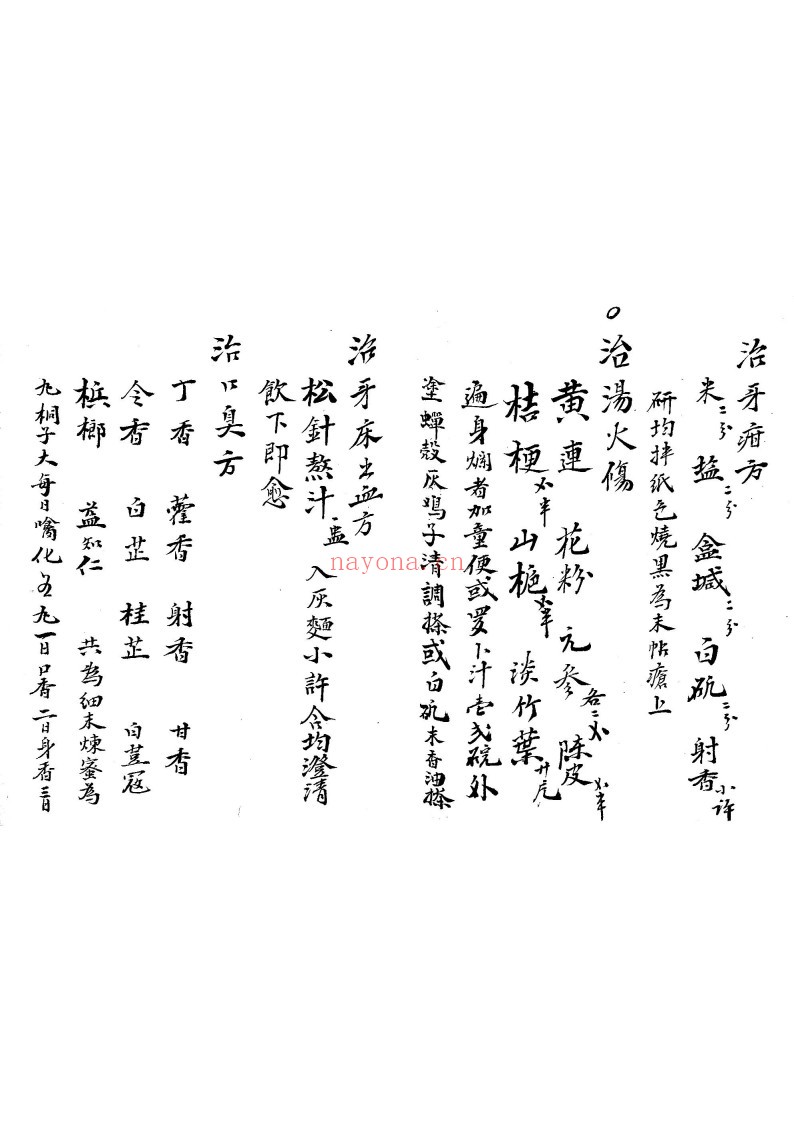 治牙疳方
米二分 盐二分 盒堿二分 白矾二分 射香小許
研均拌纸包燒黑為末帖瘡上
治湯火傷
黄連 花粉 元參各二 陳皮
桔梗 山梔 淡竹葉廿片
遍身爛者加童便或罗卜汁壱弍碗外
塗蟬殼灰鳮子清調搽或白矾末香油搽
治牙床出血方
松針熬汁一盅 入灰麵小許合均澄清
飲下即愈
治口臭方
丁香 藿香 射香 甘香
令香 白芷 桂芷 白荳冦
槟榔 益知仁 共為细末煉蜜為
丸桐子大每日噙化五丸一日口香二日身香三日
nayona.cn